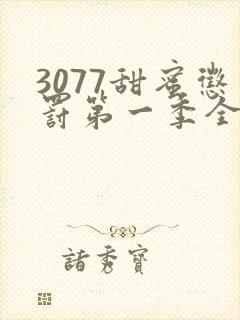 3077甜蜜懲
罰第一季全
諸秀寶